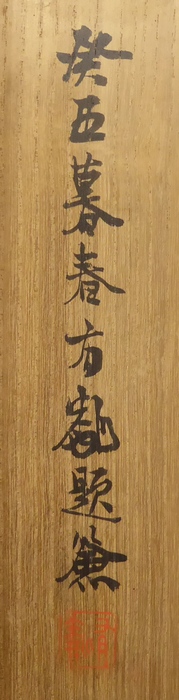 癸丑暮春方巌題簽